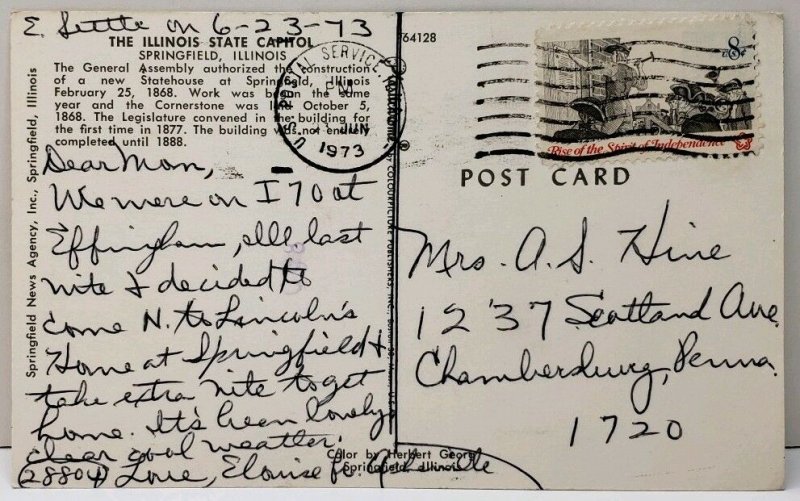 E. Settle on 6-23-73
THE ILLINOIS STATE CAPITOL
SPRINGFIELD, ILLINOIS
The General Assembly authorized the construction
of a new Statehouse at Springfield, Illinois
February 25, 1868. Work was begun the same
year and the Cornerstone was laid October 5,
1868. The Legislature convened in the building for
the first time in 1877. The building was not entirely
completed until 1888.
Dear Mom,
We were on I 70 at
Effingham, Ill last
nite & decided to
come N. to Lincoln's
Home at Springfield &
take extra nite to get
home. It's been lovely
clear cool weather.
(28804) Love, Elouise
Springfield News Agency, Inc., Springfield, Illinois
Color by Herbert Georg
Springfield, Illinois
64128
U.S. POSTAL SERVICE
PM
JUN
1973
8c
Rise of the Spirit of Independence
POST CARD
Mrs. A. S. Hine
1237 Scotland Ave.
Chambersburg, Penna.
1720